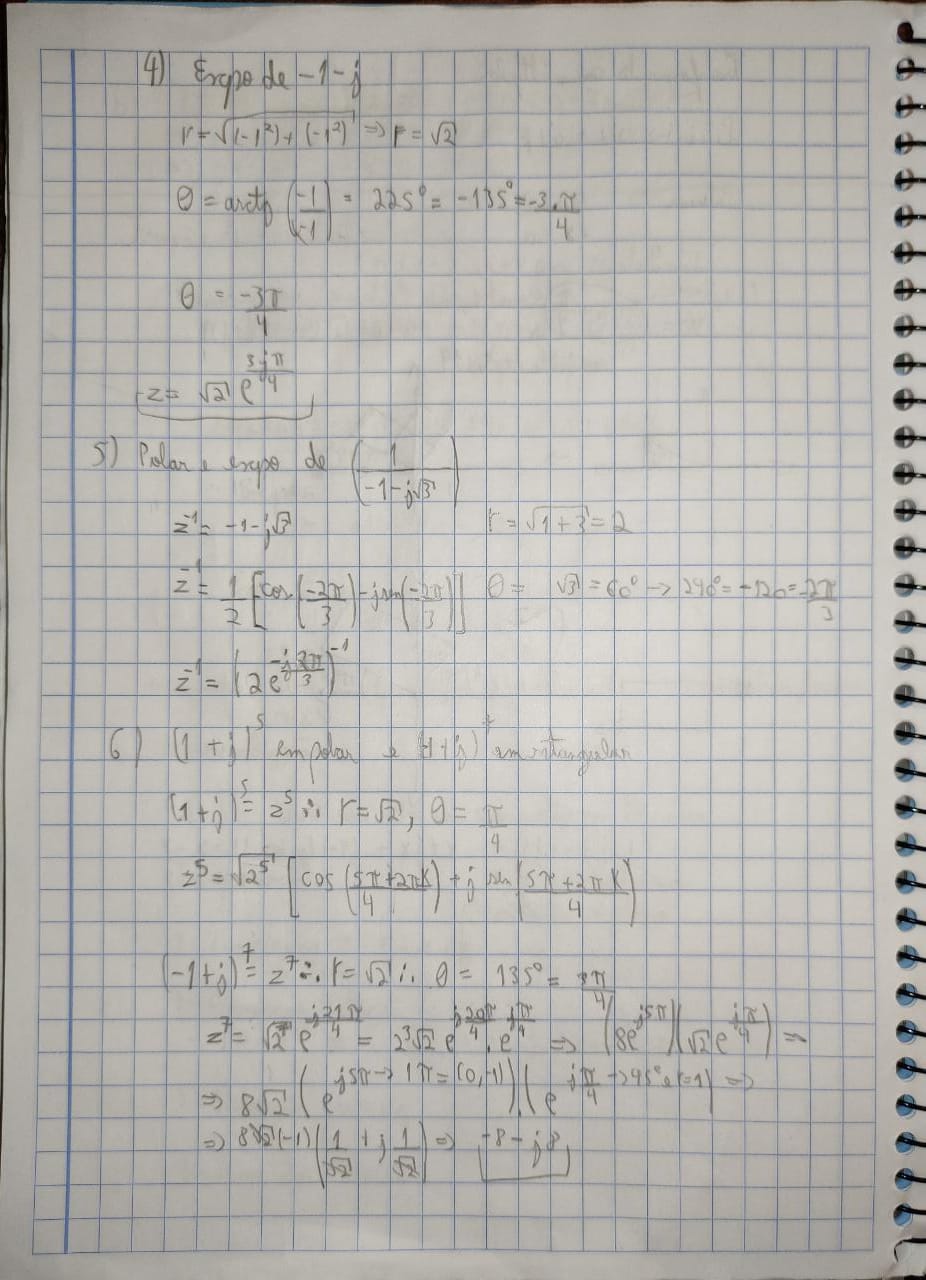 4) Expo de -1-j
r = √((-1²)+(-1²)) => r = √2
θ = arctg (-1/-1) = 225° = -135° = -3.π/4
θ = -3π/4
z = √2 e^(3jπ/4)
5) Polar e expo de (1/(-1-j√3))
z⁻¹ = -1-j√3 r = √(1+3) = 2
z⁻¹ = 1/2 [cos(-2π/3) - j sen(-2π/3)] θ = √3 = 60° → 240° = -120 = -2π/3
z⁻¹ = (2e^(-j2π/3))⁻¹
6) (1+j)⁵ em polar e (-1+j)⁷ em retangular
(1+j)⁵ = z⁵ ∴ r = √2, θ = π/4
z⁵ = √2⁵ [cos((5π+2πk)/4) + j sen((5π+2πk)/4)
(-1+j)⁷ = z⁷ ∴ r = √2 ∴ θ = 135° = 3π/4
z⁷ = √2⁷ e^(j21π/4) = 2³√2 e^(j20π/4) . e^(jπ/4) => (8e^(j5π))(√2 e^(jπ/4)) =>
=> 8√2 (e^(j5π → 1π = (0,-1))).(e^(jπ/4 → 45°)) =>
=> 8√2(-1)(1/√2 + j 1/√2) => -8-j8